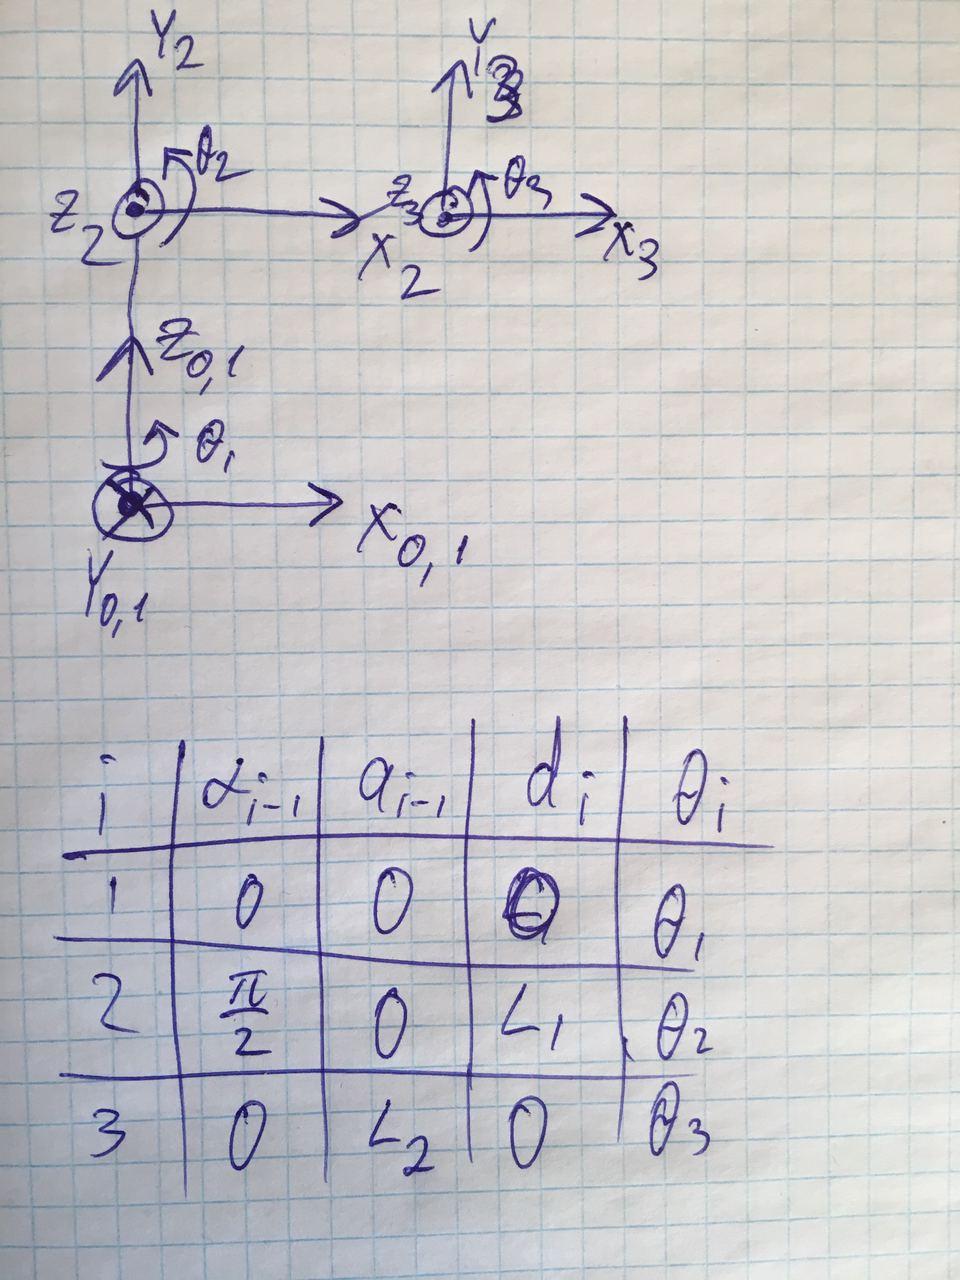 Y2
Y3
θ2
Z2
X2
Z3
θ3
X3
Z0,1
θ1
X0,1
Y0,1
i αi-1 ai-1 di θi
1 0 0 0 θ1
2 π/2 0 L1 θ2
3 0 L2 0 θ3